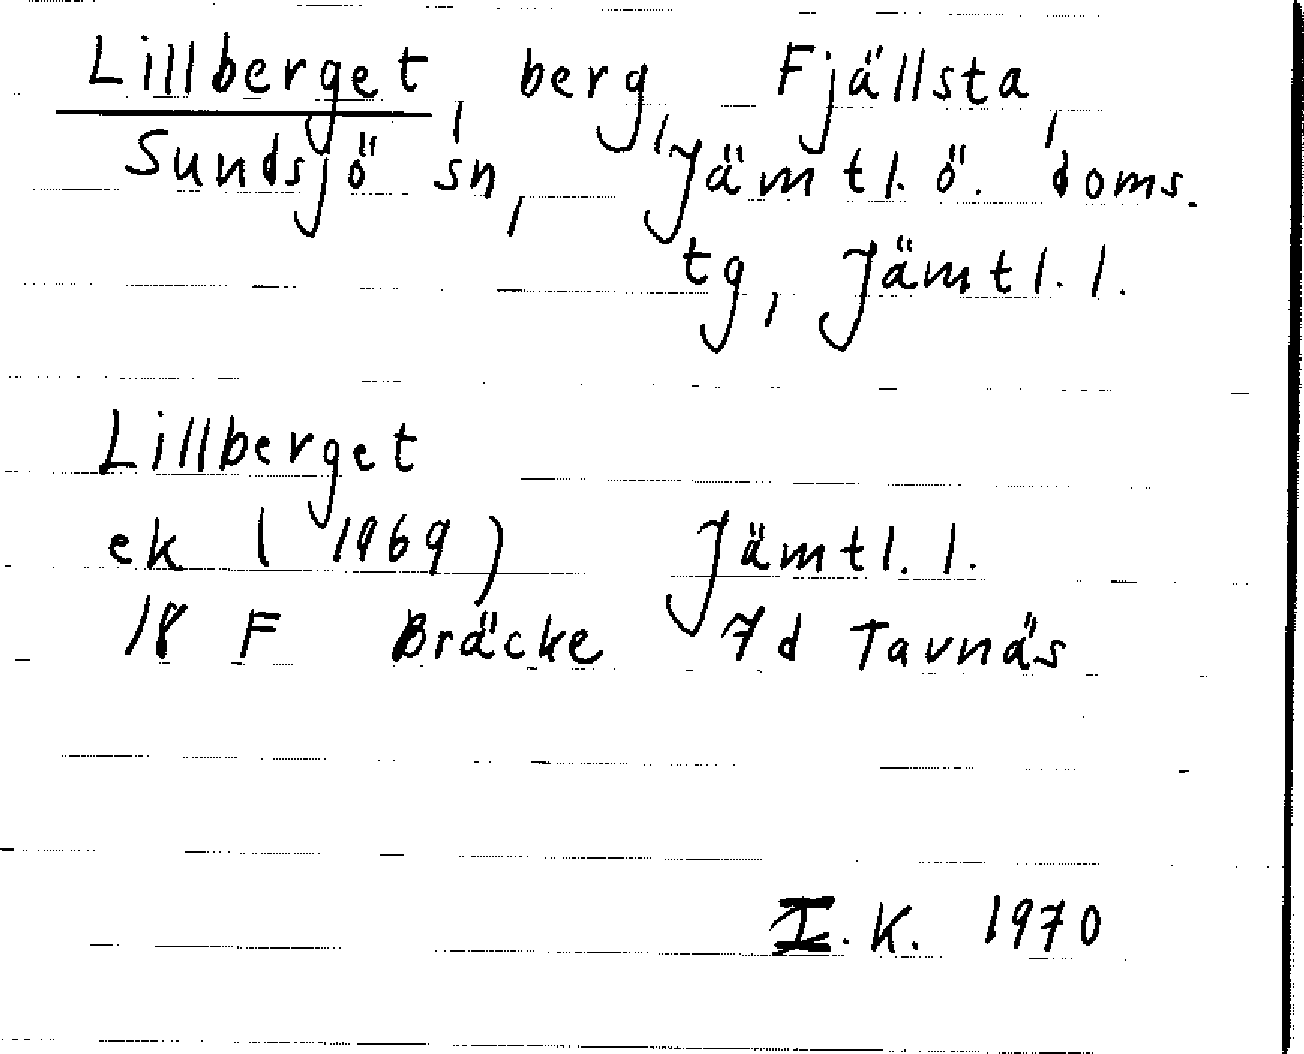 Lillberget, berg, Fjällsta,
Sundsjö sn, Jämtl. ö. doms.
tg, Jämtl. l.
Lillberget
ek (1969) Jämtl. l.
18 F Bräcke 7d Tavnäs
I. K. 1970